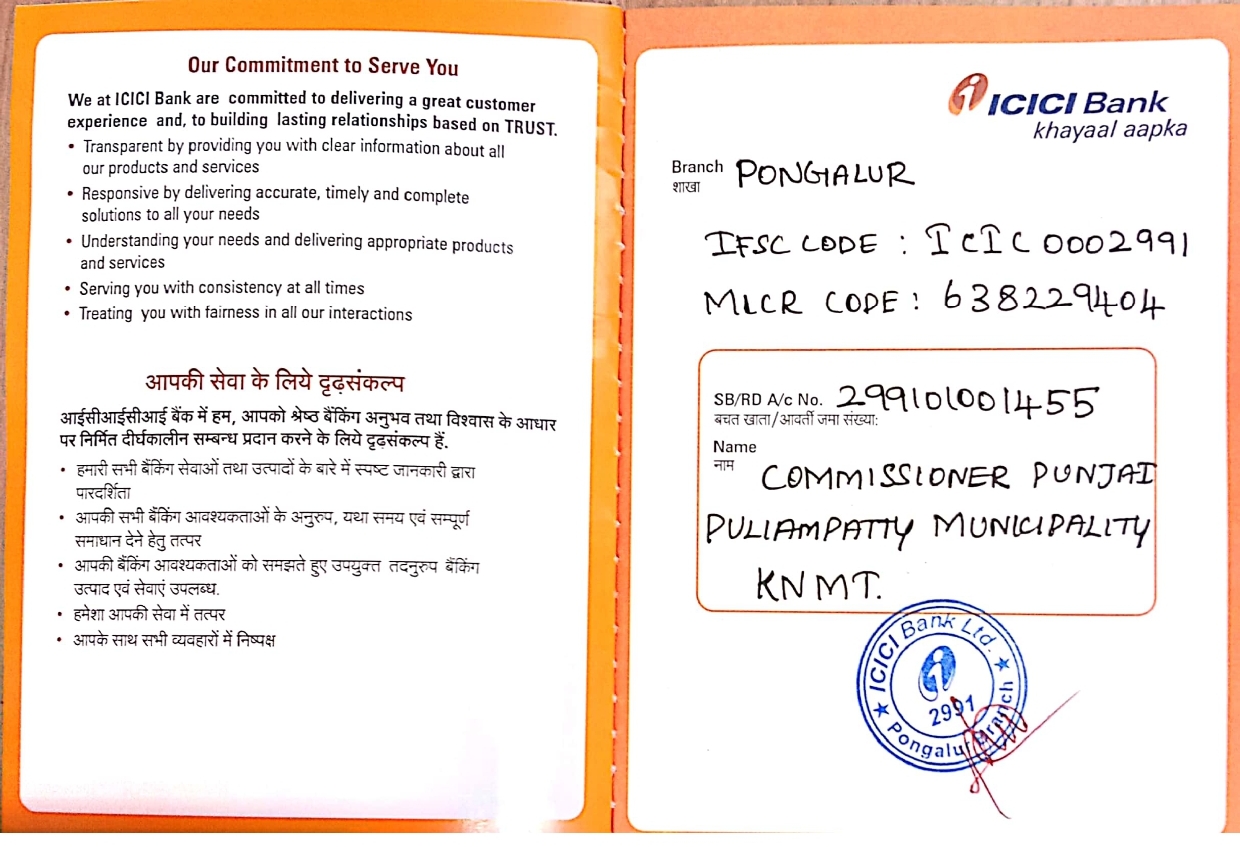 Our Commitment to Serve You
We at ICICI Bank are committed to delivering a great customer
experience and, to building lasting relationships based on TRUST.
• Transparent by providing you with clear information about all
our products and services
• Responsive by delivering accurate, timely and complete
solutions to all your needs
• Understanding your needs and delivering appropriate products
and services
• Serving you with consistency at all times
• Treating you with fairness in all our interactions
आपकी सेवा के लिये दृढ़संकल्प
आईसीआईसीआई बैंक में हम, आपको श्रेष्ठ बैंकिंग अनुभव तथा विश्वास के आधार
पर निर्मित दीर्घकालीन सम्बन्ध प्रदान करने के लिये दृढ़संकल्प हैं.
• हमारी सभी बैंकिंग सेवाओं तथा उत्पादों के बारे में स्पष्ट जानकारी द्वारा
पारदर्शिता
• आपकी सभी बैंकिंग आवश्यकताओं के अनुरुप, यथा समय एवं सम्पूर्ण
समाधान देने हेतु तत्पर
• आपकी बैंकिंग आवश्यकताओं को समझते हुए उपयुक्त तदनुरुप बैंकिंग
उत्पाद एवं सेवाएं उपलब्ध.
• हमेशा आपकी सेवा में तत्पर
• आपके साथ सभी व्यवहारों में निष्पक्ष
ICICI Bank
khayaal aapka
Branch PONGALUR
शाखा
IFSC CODE : ICIC0002991
MICR CODE : 638229404
SB/RD A/c No. 299101001455
बचत खाता/आवर्ती जमा संख्या:
Name
नाम
COMMISSIONER PUNJAI
PULIAMPATTY MUNICIPALITY
KNMT.
ICICI Bank Ltd.
2991
Pongalur Branch